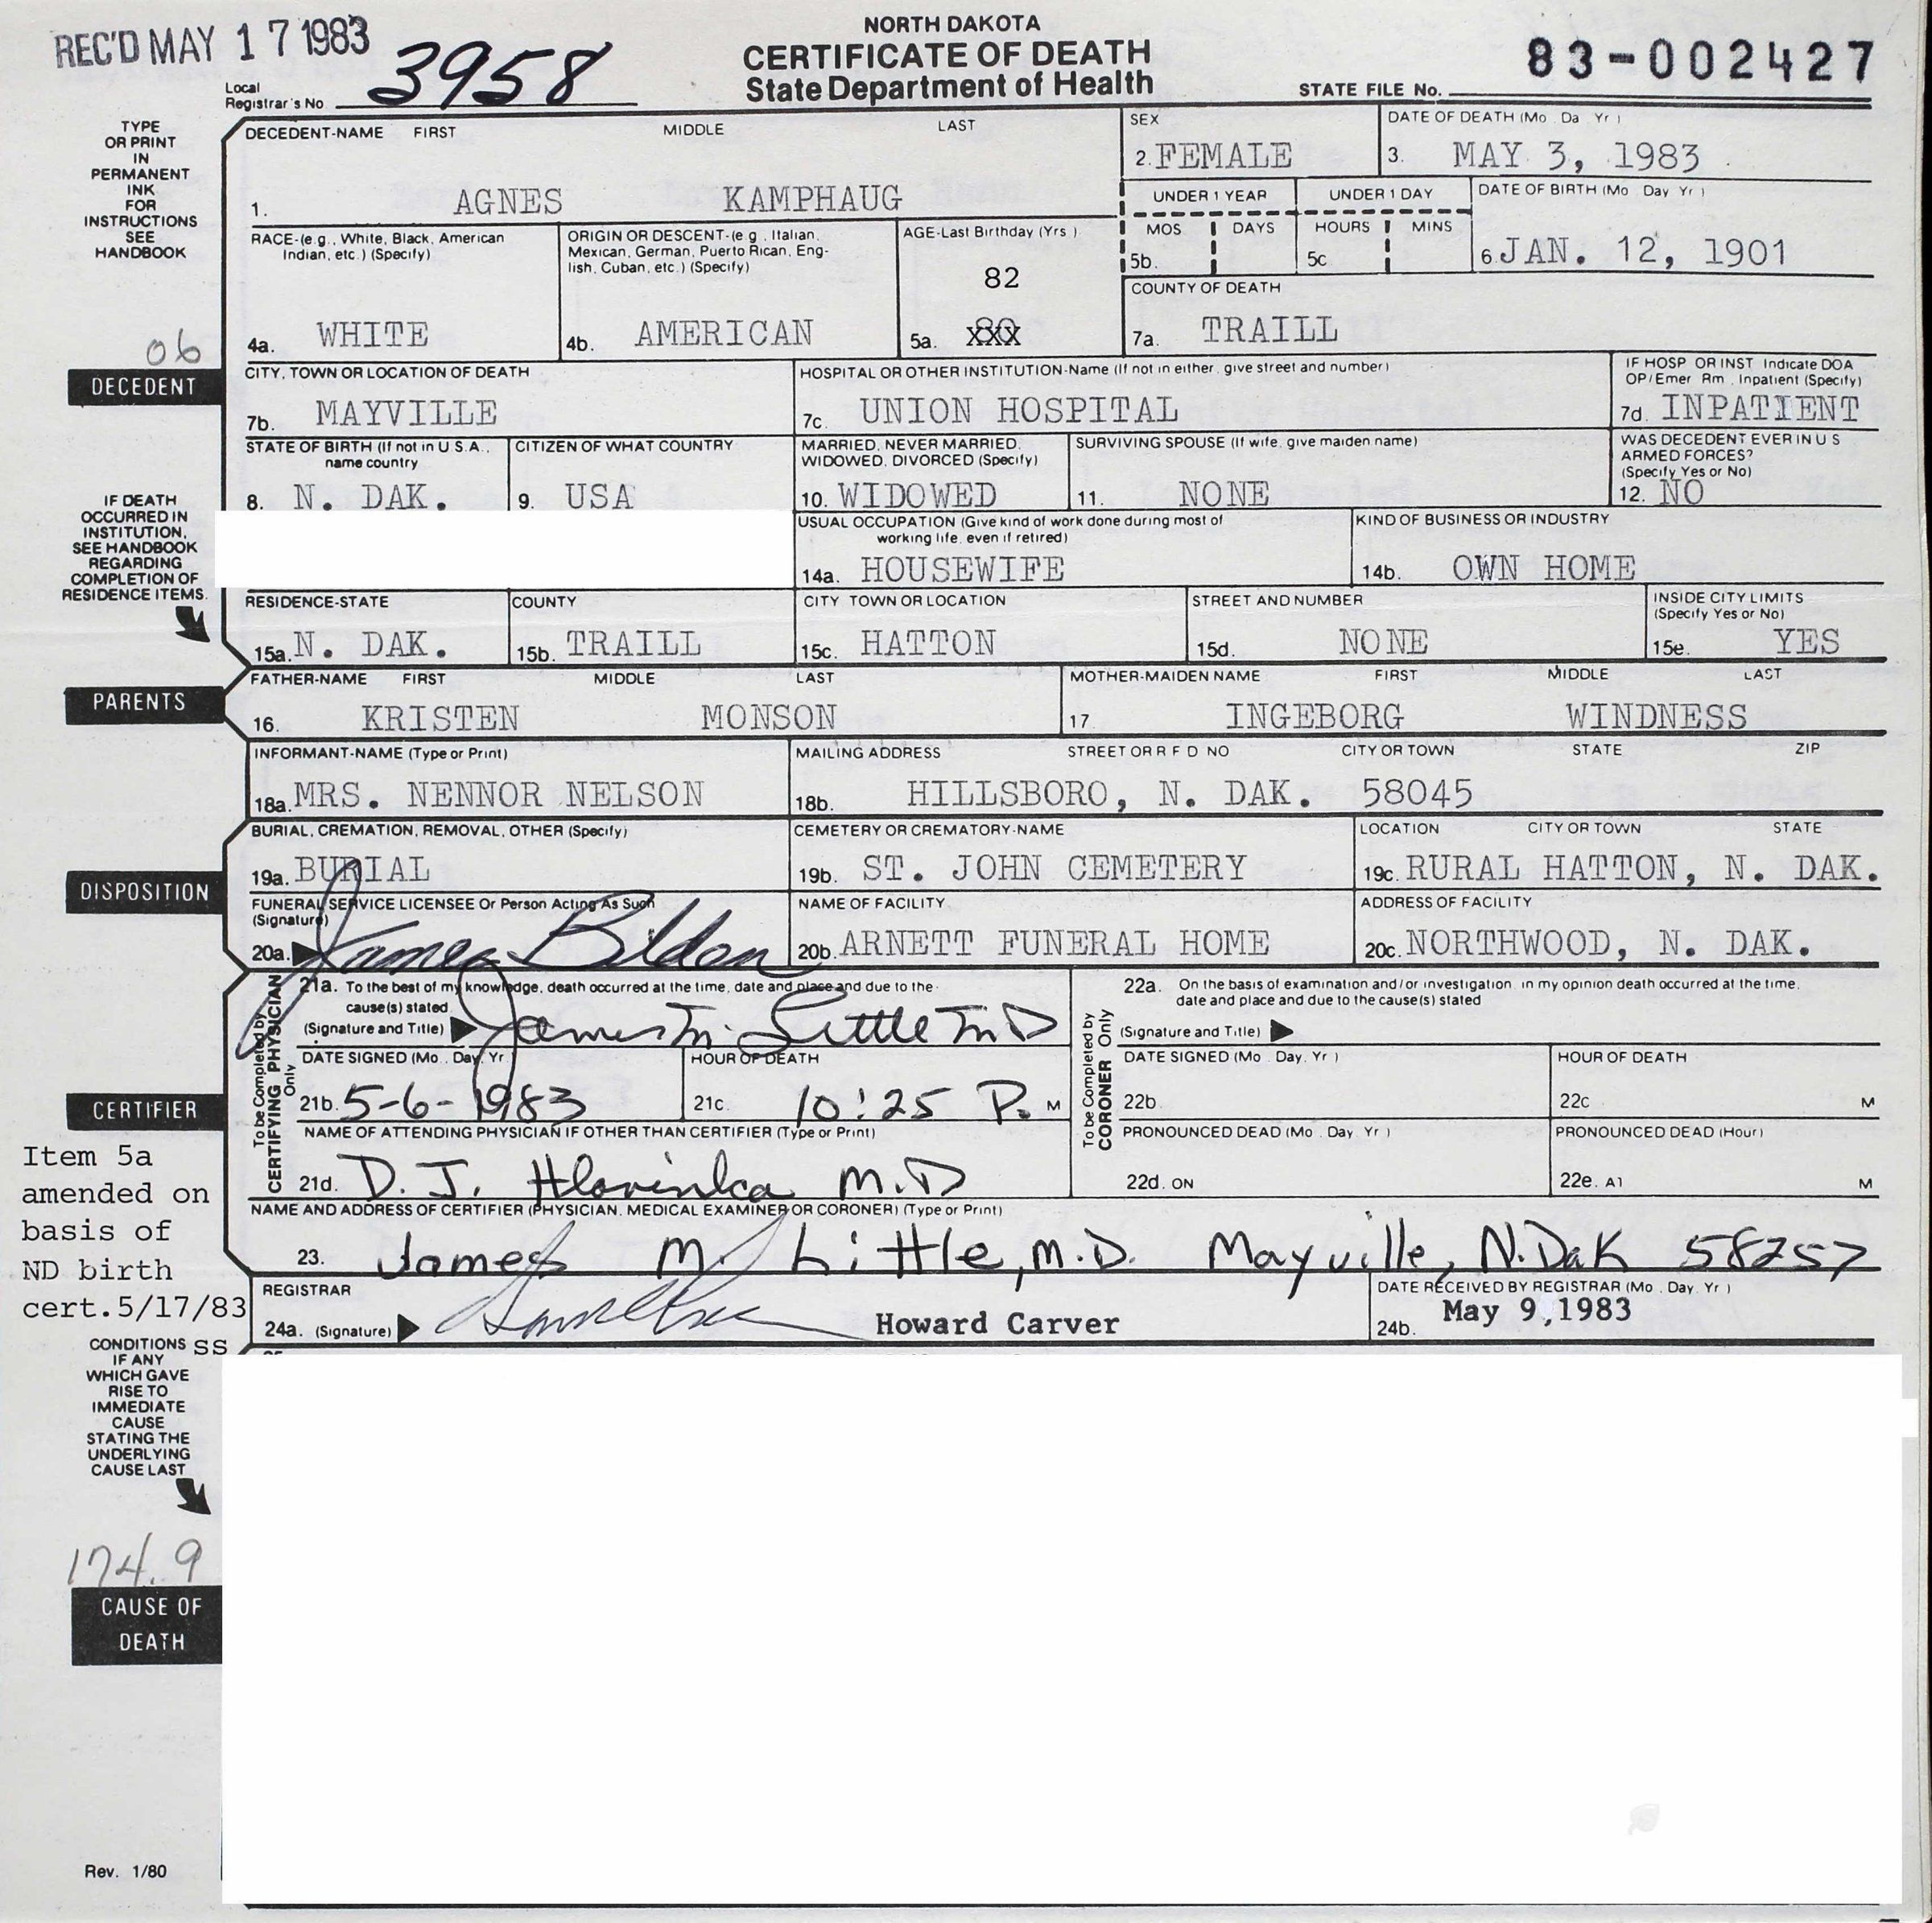 REC'D MAY 17 1983
NORTH DAKOTA
CERTIFICATE OF DEATH
State Department of Health
Local
Registrar's No 3958
STATE FILE No. 83-002427
TYPE
OR PRINT
IN
PERMANENT
INK
FOR
INSTRUCTIONS
SEE
HANDBOOK
DECEDENT-NAME FIRST MIDDLE LAST
1. AGNES KAMPHAUG
SEX
2. FEMALE
DATE OF DEATH (Mo Da Yr)
3. MAY 3, 1983
RACE-(e.g., White, Black, American
Indian, etc.) (Specify)
4a. WHITE
ORIGIN OR DESCENT-(e.g. Italian,
Mexican, German, Puerto Rican, Eng-
lish, Cuban, etc.) (Specify)
4b. AMERICAN
AGE-Last Birthday (Yrs)
82
5a. XXX
UNDER 1 YEAR
MOS DAYS
5b.
UNDER 1 DAY
HOURS MINS
5c
DATE OF BIRTH (Mo Day Yr)
6. JAN. 12, 1901
COUNTY OF DEATH
7a. TRAILL
06
DECEDENT
CITY, TOWN OR LOCATION OF DEATH
7b. MAYVILLE
HOSPITAL OR OTHER INSTITUTION-Name (If not in either, give street and number)
7c. UNION HOSPITAL
IF HOSP OR INST Indicate DOA
OP/Emer Rm, Inpatient (Specify)
7d. INPATIENT
STATE OF BIRTH (If not in U S A.,
name country
8. N. DAK.
CITIZEN OF WHAT COUNTRY
9. USA
MARRIED, NEVER MARRIED,
WIDOWED, DIVORCED (Specify)
10. WIDOWED
SURVIVING SPOUSE (If wife, give maiden name)
11. NONE
WAS DECEDENT EVER IN U S
ARMED FORCES?
(Specify Yes or No)
12. NO
IF DEATH
OCCURRED IN
INSTITUTION,
SEE HANDBOOK
REGARDING
COMPLETION OF
RESIDENCE ITEMS.
USUAL OCCUPATION (Give kind of work done during most of
working life, even if retired)
14a. HOUSEWIFE
KIND OF BUSINESS OR INDUSTRY
14b. OWN HOME
RESIDENCE-STATE
15a. N. DAK.
COUNTY
15b. TRAILL
CITY TOWN OR LOCATION
15c. HATTON
STREET AND NUMBER
15d. NONE
INSIDE CITY LIMITS
(Specify Yes or No)
15e. YES
PARENTS
FATHER-NAME FIRST MIDDLE LAST
16. KRISTEN MONSON
MOTHER-MAIDEN NAME FIRST MIDDLE LAST
17 INGEBORG WINDNESS
INFORMANT-NAME (Type or Print)
18a. MRS. NENNOR NELSON
MAILING ADDRESS STREET OR R F D NO CITY OR TOWN STATE ZIP
18b. HILLSBORO, N. DAK. 58045
DISPOSITION
BURIAL, CREMATION, REMOVAL, OTHER (Specify)
19a. BURIAL
CEMETERY OR CREMATORY-NAME
19b. ST. JOHN CEMETERY
LOCATION CITY OR TOWN STATE
19c. RURAL HATTON, N. DAK.
FUNERAL SERVICE LICENSEE Or Person Acting As Such
(Signature)
20a. James Bilden
NAME OF FACILITY
20b. ARNETT FUNERAL HOME
ADDRESS OF FACILITY
20c. NORTHWOOD, N. DAK.
CERTIFIER
To be Completed by
CERTIFYING PHYSICIAN
Only
21a. To the best of my knowledge, death occurred at the time, date and place and due to the
cause(s) stated
(Signature and Title) James M. Little MD
DATE SIGNED (Mo., Day, Yr
21b. 5-6-1983
HOUR OF DEATH
21c. 10:25 P. M
NAME OF ATTENDING PHYSICIAN IF OTHER THAN CERTIFIER (Type or Print)
21d. D. J. Hlavinka M.D
To be Completed by
CORONER Only
22a. On the basis of examination and/or investigation, in my opinion death occurred at the time,
date and place and due to the cause(s) stated
(Signature and Title)
DATE SIGNED (Mo. Day, Yr)
22b.
HOUR OF DEATH
22c M
PRONOUNCED DEAD (Mo. Day Yr)
22d. ON
PRONOUNCED DEAD (Hour)
22e. AT M
NAME AND ADDRESS OF CERTIFIER (PHYSICIAN, MEDICAL EXAMINER OR CORONER) (Type or Print)
23. James M. Little, M.D. Mayville, N.Dak 58257
Item 5a
amended on
basis of
ND birth
cert.5/17/83
SS
REGISTRAR
24a. (Signature) Howard Carver
DATE RECEIVED BY REGISTRAR (Mo. Day, Yr)
24b. May 9,1983
CONDITIONS
IF ANY
WHICH GAVE
RISE TO
IMMEDIATE
CAUSE
STATING THE
UNDERLYING
CAUSE LAST
174.9
CAUSE OF
DEATH
Rev. 1/80